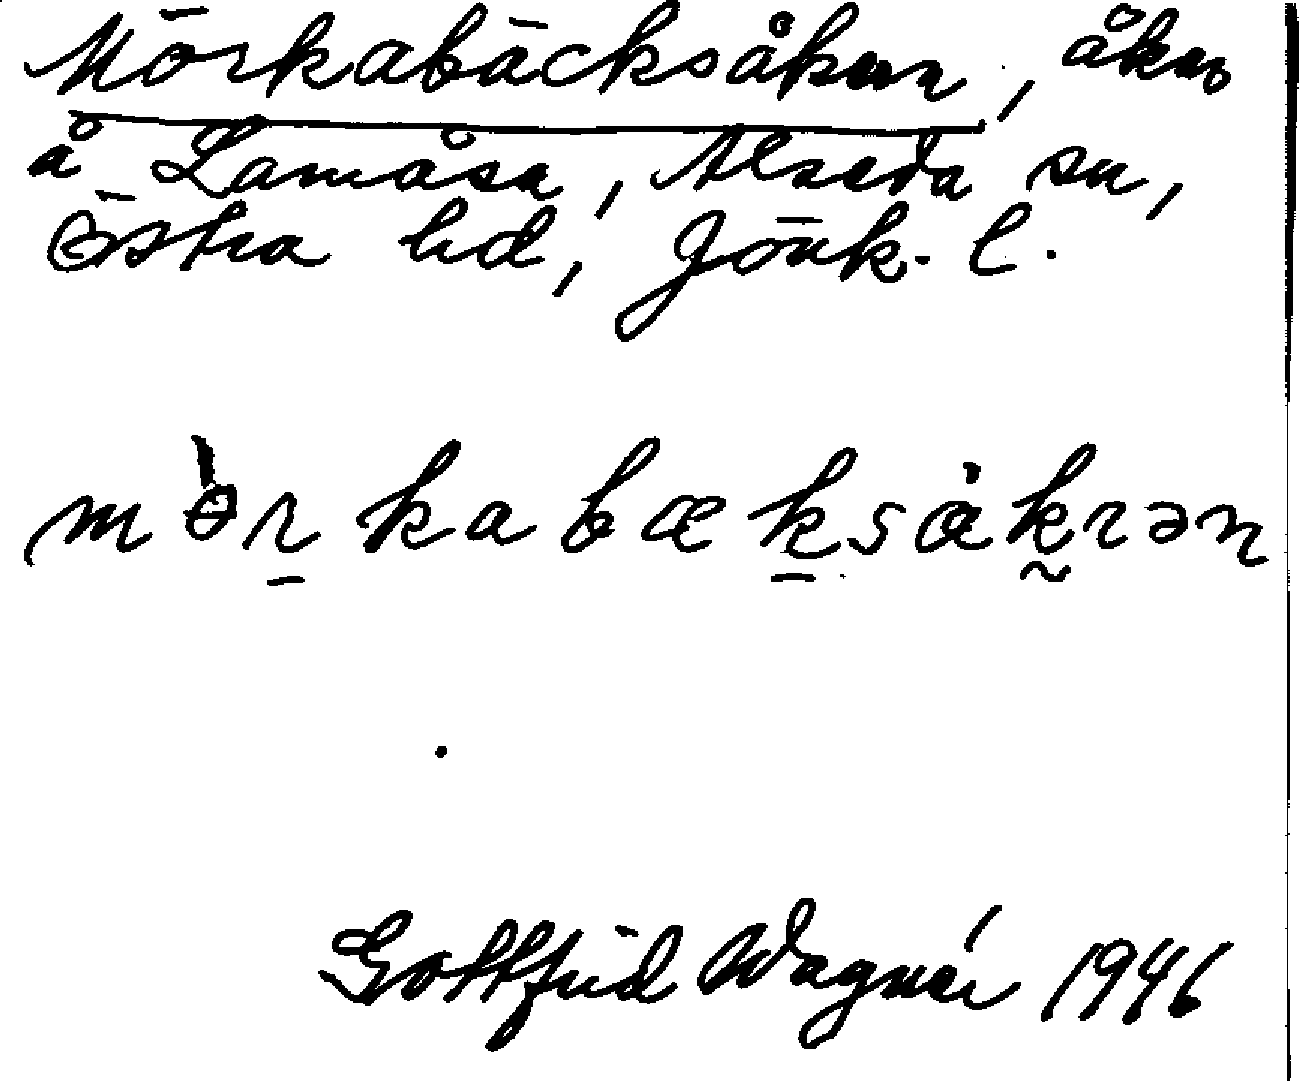 Mörkabäcksåkern, åker
å Lamåsa, Alseda sn,
Östra hd, Jönk. l.
mö̀rkabæksåkrən
Gottfrid Wagnér 1946